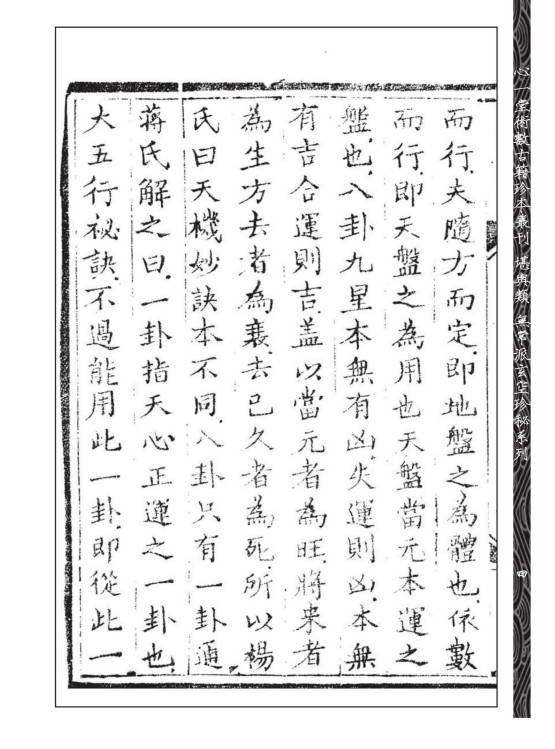 而行.夫隨方而定.即地盤之為體也.依數
而行.即天盤之為用也天盤當元本運之
盤也.八卦九星本無有凶.失運則凶.本無
有吉合運則吉.盖以當元者為旺.將来者
為生方去者為衰.去已久者為死.所以楊
氏曰天機妙訣本不同.八卦只有一卦通
蔣氏解之曰.一卦指天心正運之一卦也.
大五行祕訣.不過能用此一卦.即從此一
心一堂術數古籍珍本叢刊 堪輿類 無常派玄空珍秘系列
四